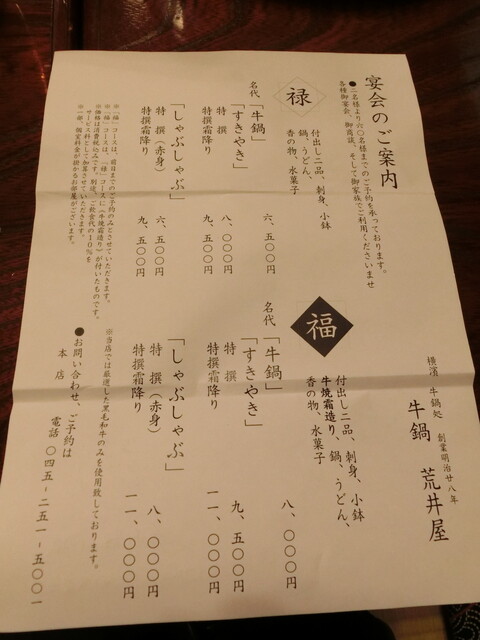 宴会のご案内
●二名様より六〇名様までのご予約を承っております。
各種御宴会、御商談、そして御家族でご利用くださいませ
禄
付出し二品、刺身、小鉢
鍋、うどん、
香の物、水菓子
名代「牛鍋」 六、五〇〇円
「すきやき」
特撰 八、〇〇〇円
特撰霜降り 九、五〇〇円
「しゃぶしゃぶ」
特撰(赤身) 六、五〇〇円
特撰霜降り 九、五〇〇円
※「福」コースは、前日までのご予約のみとさせていただきます。
※「福」コースは、「禄」コースに(牛焼霜造り)が付いたものです。
※価格は消費税込みです。別途、ご飲食代の10%を
サービス料として加算させていただきます。
※一部、個室料金が掛かるお部屋がございます。
横濱 牛鍋処 創業明治廿八年
牛鍋 荒井屋
福
付出し二品、刺身、小鉢
牛焼霜造り、鍋、うどん、
香の物、水菓子
名代「牛鍋」 八、〇〇〇円
「すきやき」
特撰 九、五〇〇円
特撰霜降り 一一、〇〇〇円
「しゃぶしゃぶ」
特撰(赤身) 八、〇〇〇円
特撰霜降り 一一、〇〇〇円
※当店では厳選した黒毛和牛のみを使用致しております。
●お問い合わせ、ご予約は
本店 電話 〇四五-二五一-五〇〇一